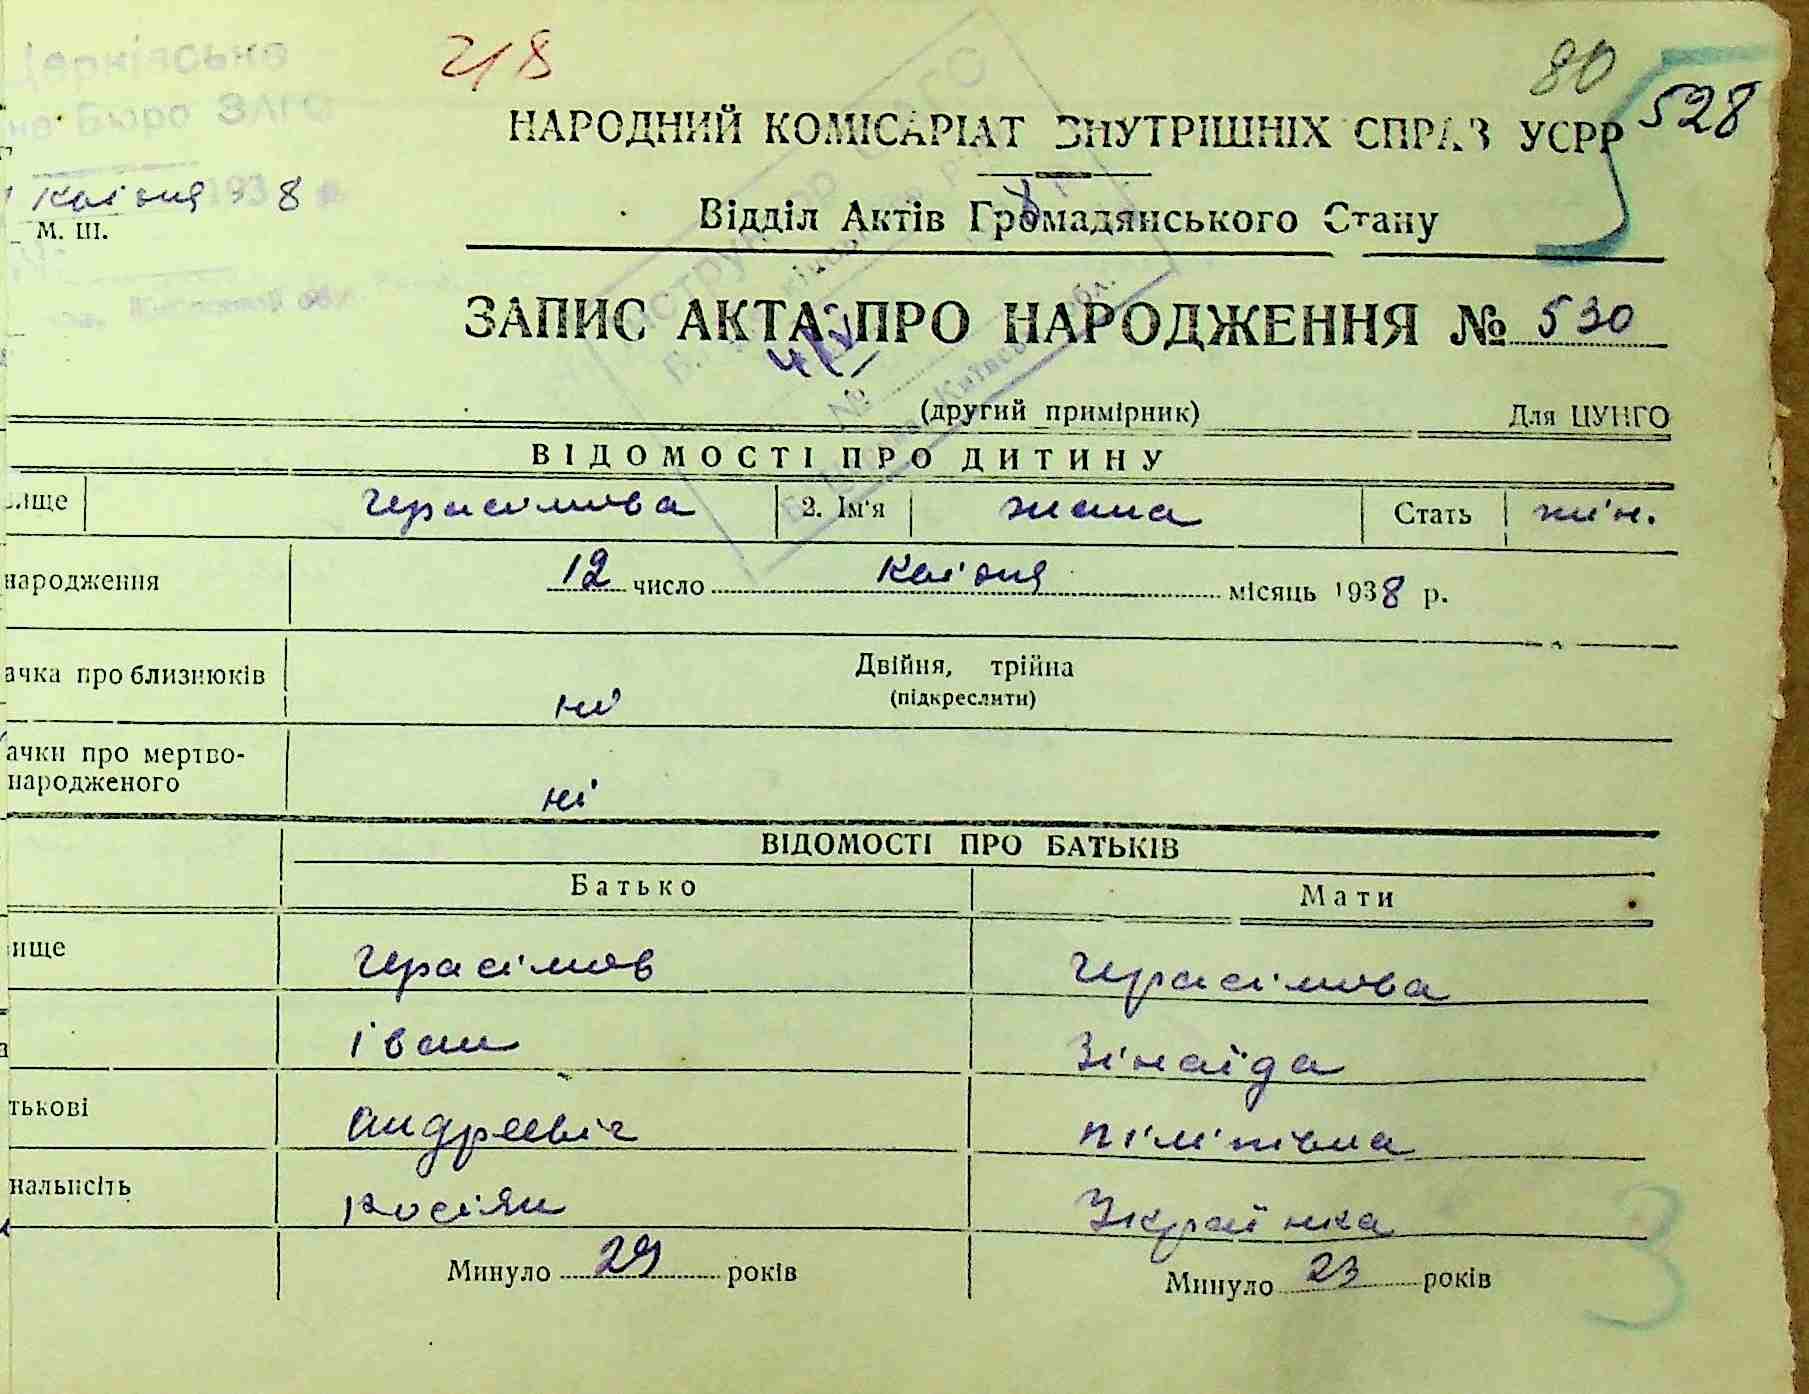 218
80
528
Церківське
Бюро ЗАГС
НАРОДНИЙ КОМІСАРІАТ ВНУТРІШНІХ СПРАВ УСРР
квітня 1938
М. Ш.
Відділ Актів Громадянського Стану
ЗАПИС АКТА ПРО НАРОДЖЕННЯ № 530
(другий примірник) Для ЦУНГО
ВІДОМОСТІ ПРО ДИТИНУ
вище Герасімова 2. Ім'я Жана Стать жін.
народження 12 число квітня місяць 1938 р.
ачка про близнюків Двійня, трійна
(підкреслити)
ні
ачки про мертво-
народженого
ні
ВІДОМОСТІ ПРО БАТЬКІВ
Батько Мати
вище Герасімов Герасімова
Іван Зінаїда
тькові Андреєвіч Піліпівна
нальність Росіян Українка
Минуло 29 років Минуло 23 років
3